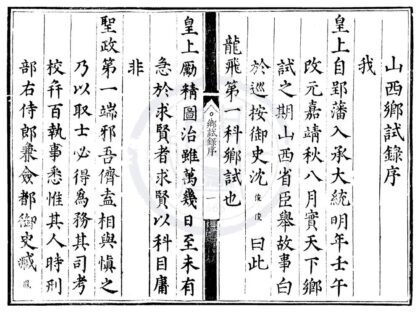 山西鄉試錄序
我
皇上自郢藩入承大統明年壬午
改元嘉靖秋八月實天下鄉
試之期山西省臣舉故事白
於巡按御史沈俊俊曰此
龍飛第一科鄉試也
鄉試錄序
一
皇上勵精圖治雖萬幾日至未有
急於求賢者求賢以科目庸
非
聖政第一端邪吾儕盍相與慎之
乃以取士必得為務其司考
校弁百執事悉惟其人時刑
部右侍郎兼僉都御史臧鳳